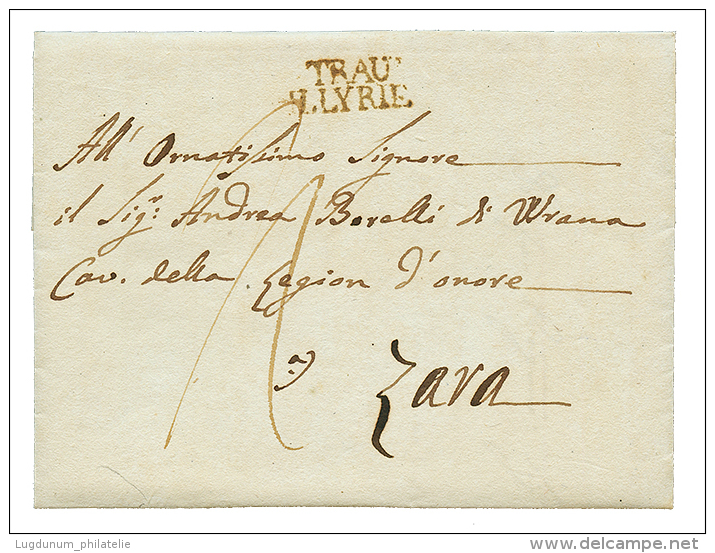 TRAU
ILLYRIE
All' Ornatissimo Signore
il Sigr. Andrea Borelli di Wrana
Cav. della Legion d'onore
a
Zara
Lugdunum_philatelie
delcampe.net